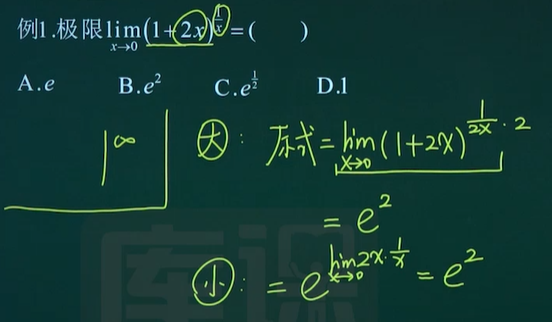 例1.极限lim(1+2x)^{1/x}=(　　)
x→0
A.e B.e² C.e^{1/2} D.1
1^∞
大: 原式=lim(1+2x)^{1/2x · 2}
x→0
=e²
小: =e^{lim_{x→0} 2x·1/x}=e²
库课